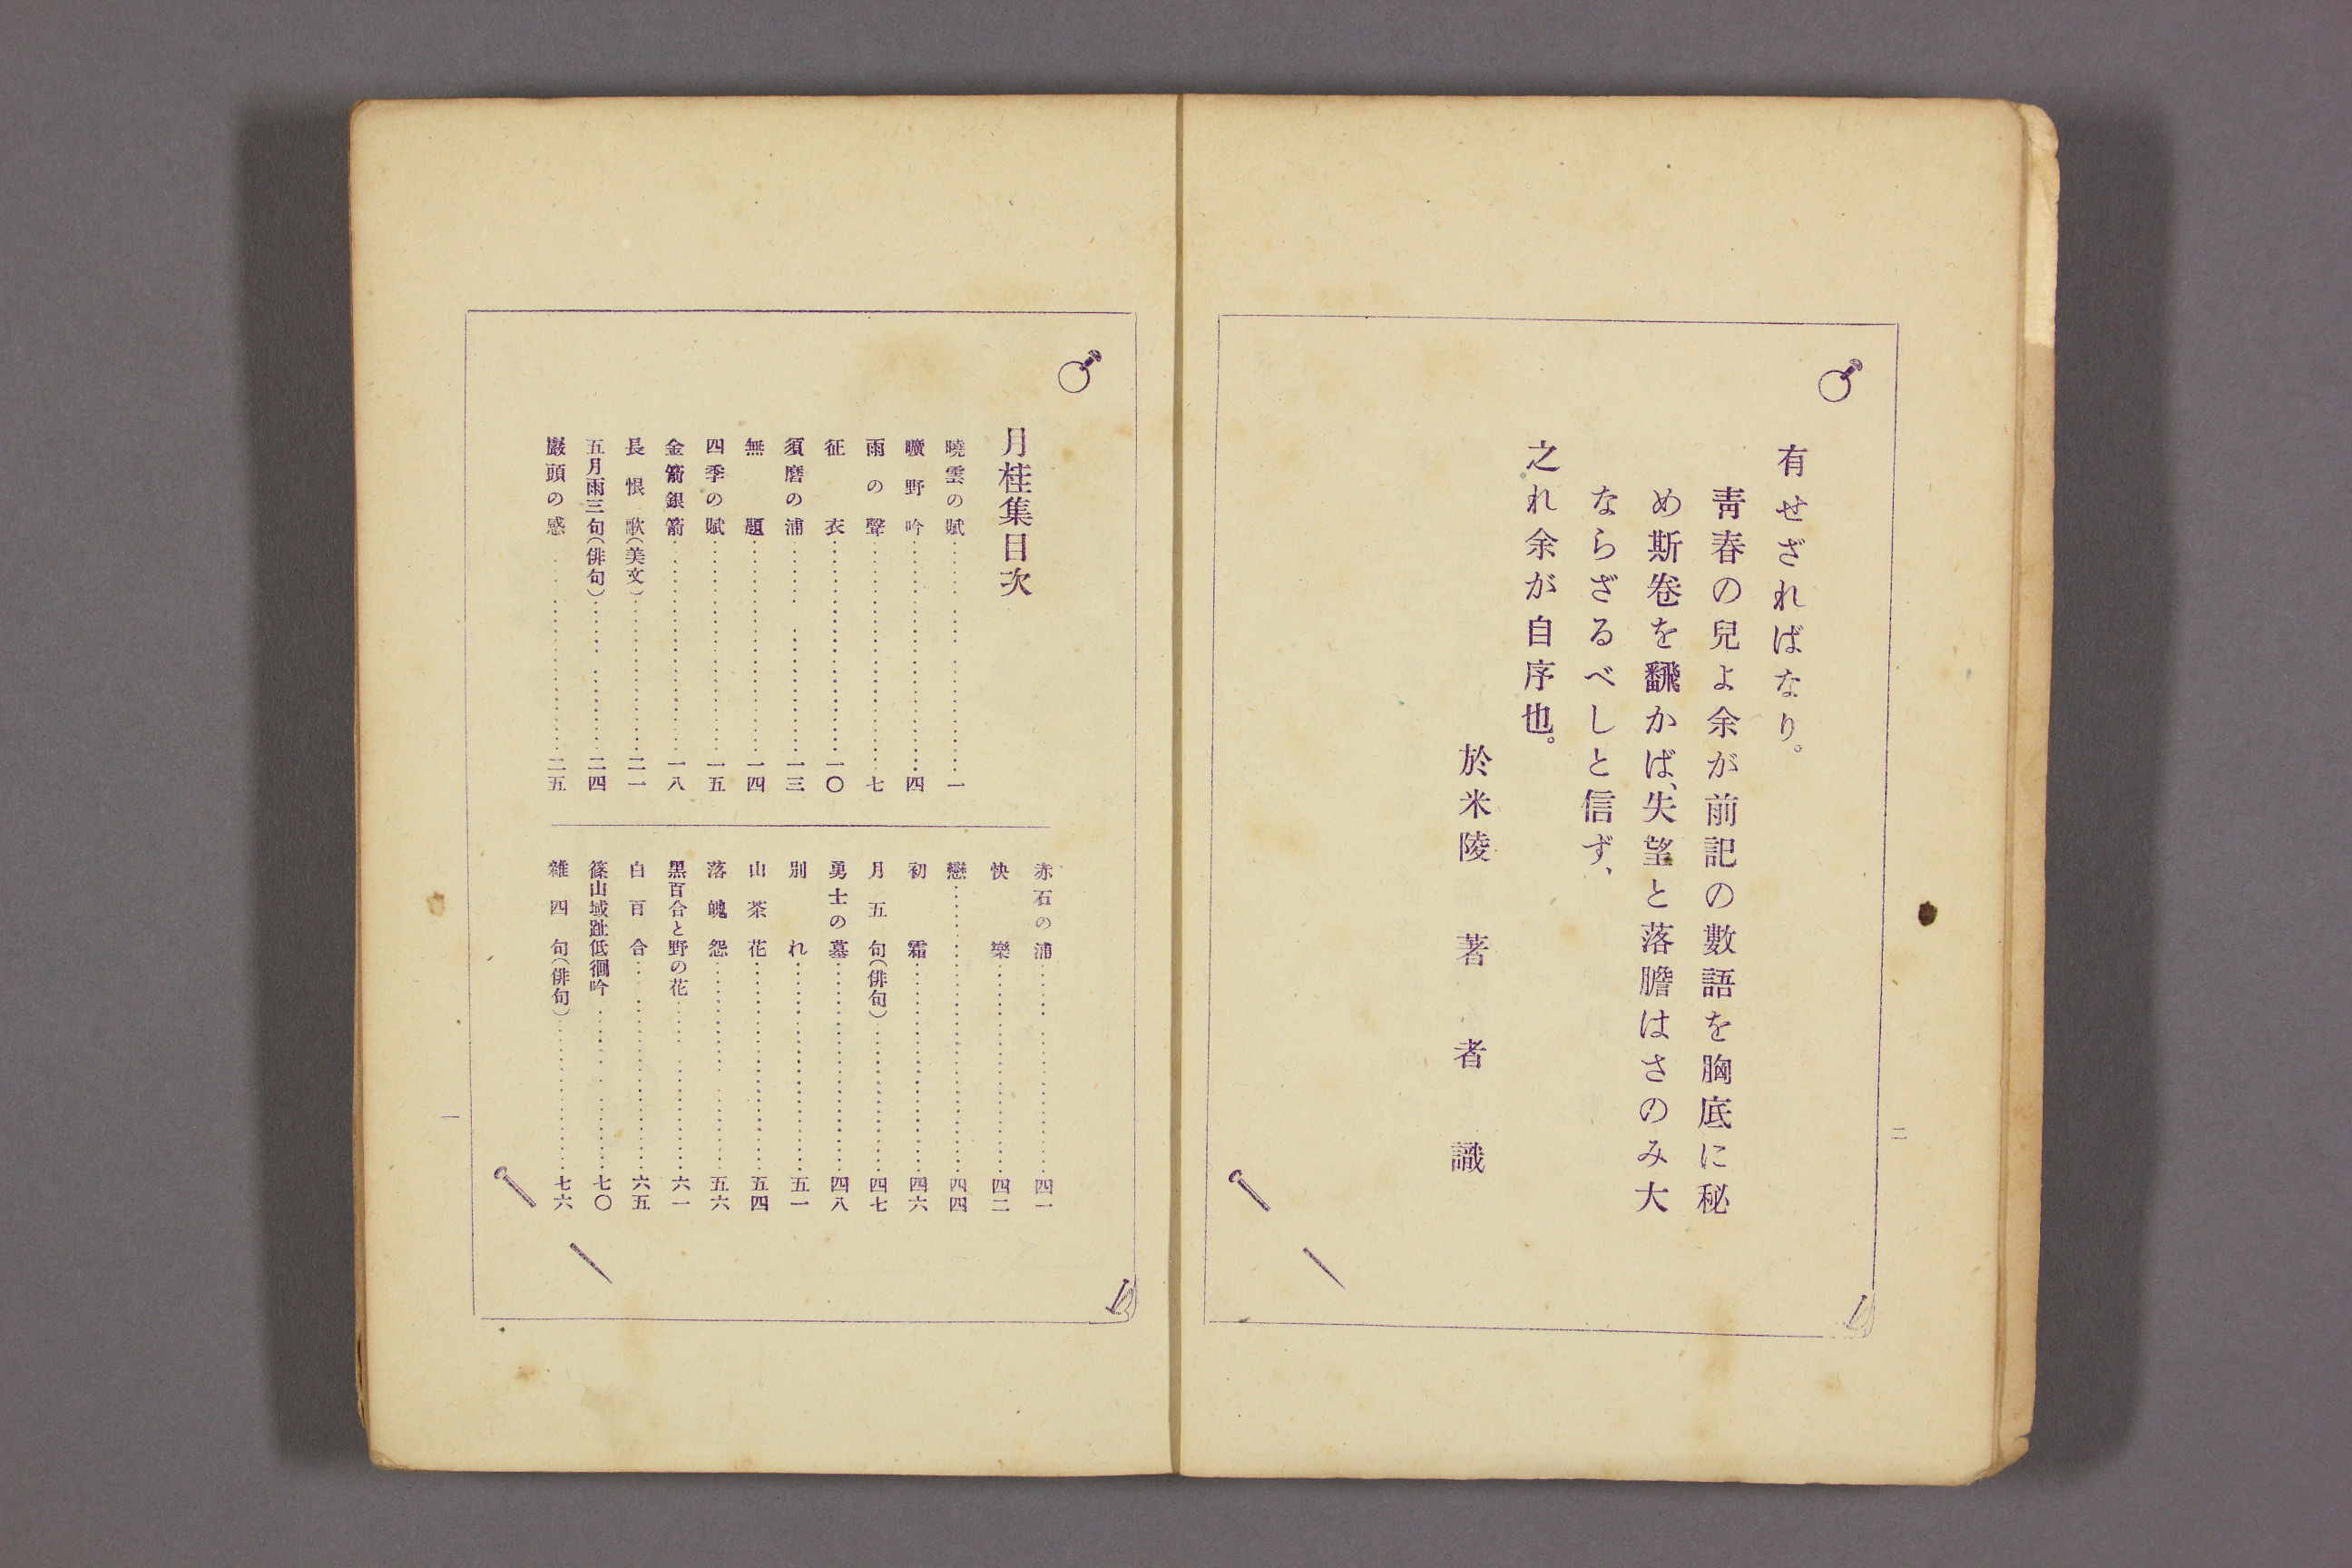 有せざればなり。
青春の兒よ余が前記の數語を胸底に秘
め斯卷を飜かば、失望と落膽はさのみ大
ならざるべしと信ず、
之れ余が自序也。
於米陵 著者識
二
月桂集目次
曉雲の賦…………一
曠野吟…………四
雨の聲…………七
征衣…………一〇
須磨の浦…………一三
無題…………一四
四季の賦…………一五
金箭銀箭…………一八
長恨歌(美文)…………二一
五月雨三句(俳句)…………二四
巖頭の感…………二五
赤石の浦…………四一
快樂…………四二
戀…………四四
初霜…………四六
月五句(俳句)…………四七
勇士の墓…………四八
別れ…………五一
山茶花…………五四
落魄怨…………五六
黑百合と野の花…………六一
白百合…………六五
篠山域趾低徊吟…………七〇
雜四句(俳句)…………七六
一